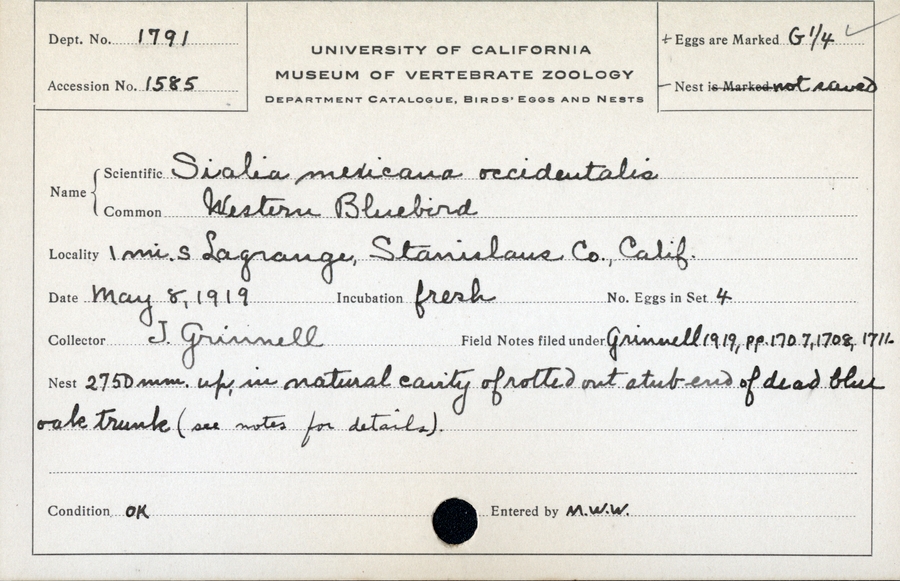 Dept. No. 1791
Accession No. 1585
UNIVERSITY OF CALIFORNIA
MUSEUM OF VERTEBRATE ZOOLOGY
DEPARTMENT CATALOGUE, BIRDS' EGGS AND NESTS
+ Eggs are Marked G 1/4 ✓
– Nest is Marked not saved
Name
Scientific Sialia mexicana occidentalis
Common Western Bluebird
Locality 1 mi. S Lagrange, Stanislaus Co., Calif.
Date May 8, 1919 Incubation fresh No. Eggs in Set 4
Collector J. Grinnell Field Notes filed under Grinnell 1919, pp. 1707, 1708, 1711.
Nest 2750 mm. up, in natural cavity of rotted out stub-end of dead blue
oak trunk (see notes for details).
Condition OK Entered by M.W.W.